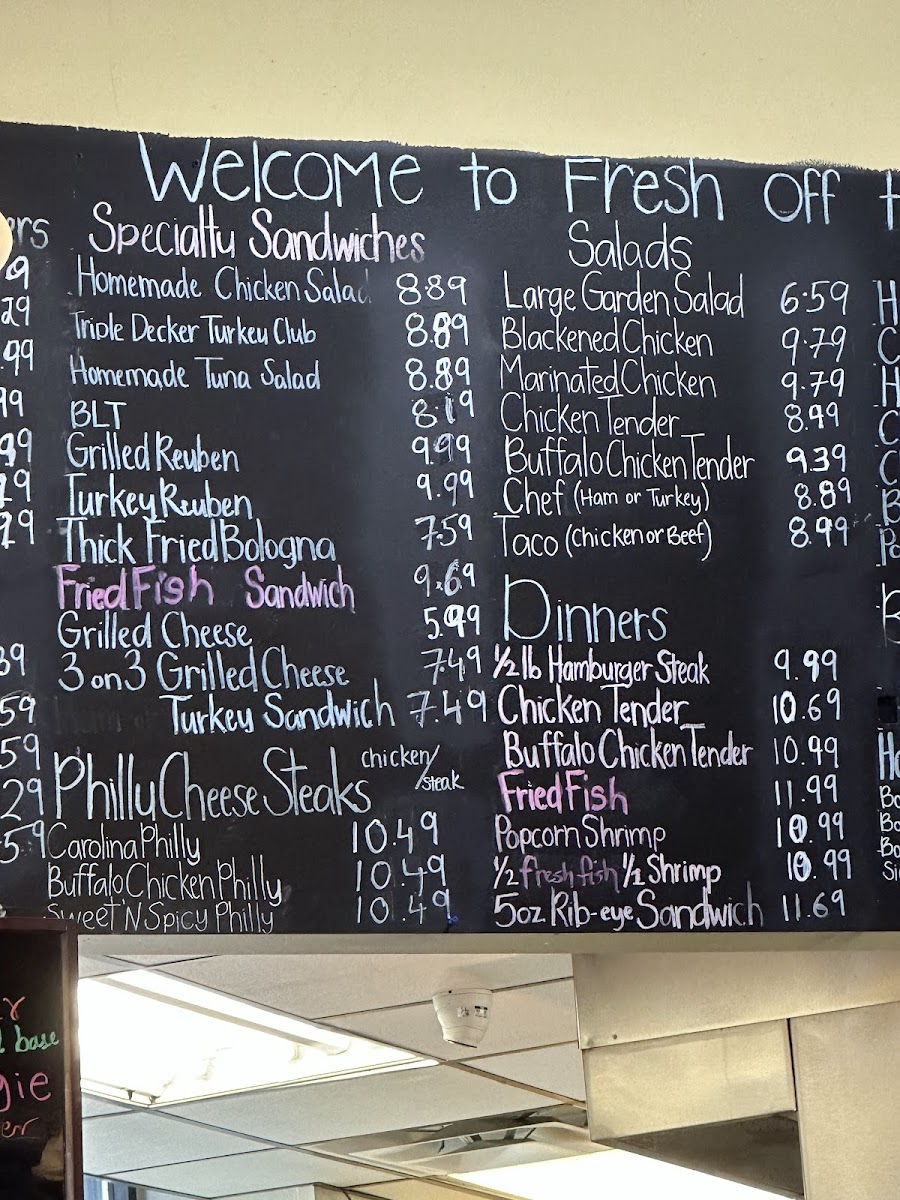 Welcome to Fresh Off
Specialty Sandwiches
Homemade Chicken Salad 8.89
Triple Decker Turkey Club 8.89
Homemade Tuna Salad 8.89
BLT 8.19
Grilled Reuben 9.99
Turkey Reuben 9.99
Thick Fried Bologna 7.59
Fried Fish Sandwich 9.69
Grilled Cheese 5.99
3 on 3 Grilled Cheese 7.49
Turkey Sandwich 7.49
Philly Cheese Steaks chicken/steak
Carolina Philly 10.49
Buffalo Chicken Philly 10.49
Sweet 'N Spicy Philly 10.49
Salads
Large Garden Salad 6.59
Blackened Chicken 9.79
Marinated Chicken 9.79
Chicken Tender 8.99
Buffalo Chicken Tender 9.39
Chef (Ham or Turkey) 8.89
Taco (Chicken or Beef) 8.99
Dinners
1/2 lb Hamburger Steak 9.99
Chicken Tender 10.69
Buffalo Chicken Tender 10.99
Fried Fish 11.99
Popcorn Shrimp 10.99
1/2 fresh fish 1/2 Shrimp 10.99
5oz Rib-eye Sandwich 11.69
base